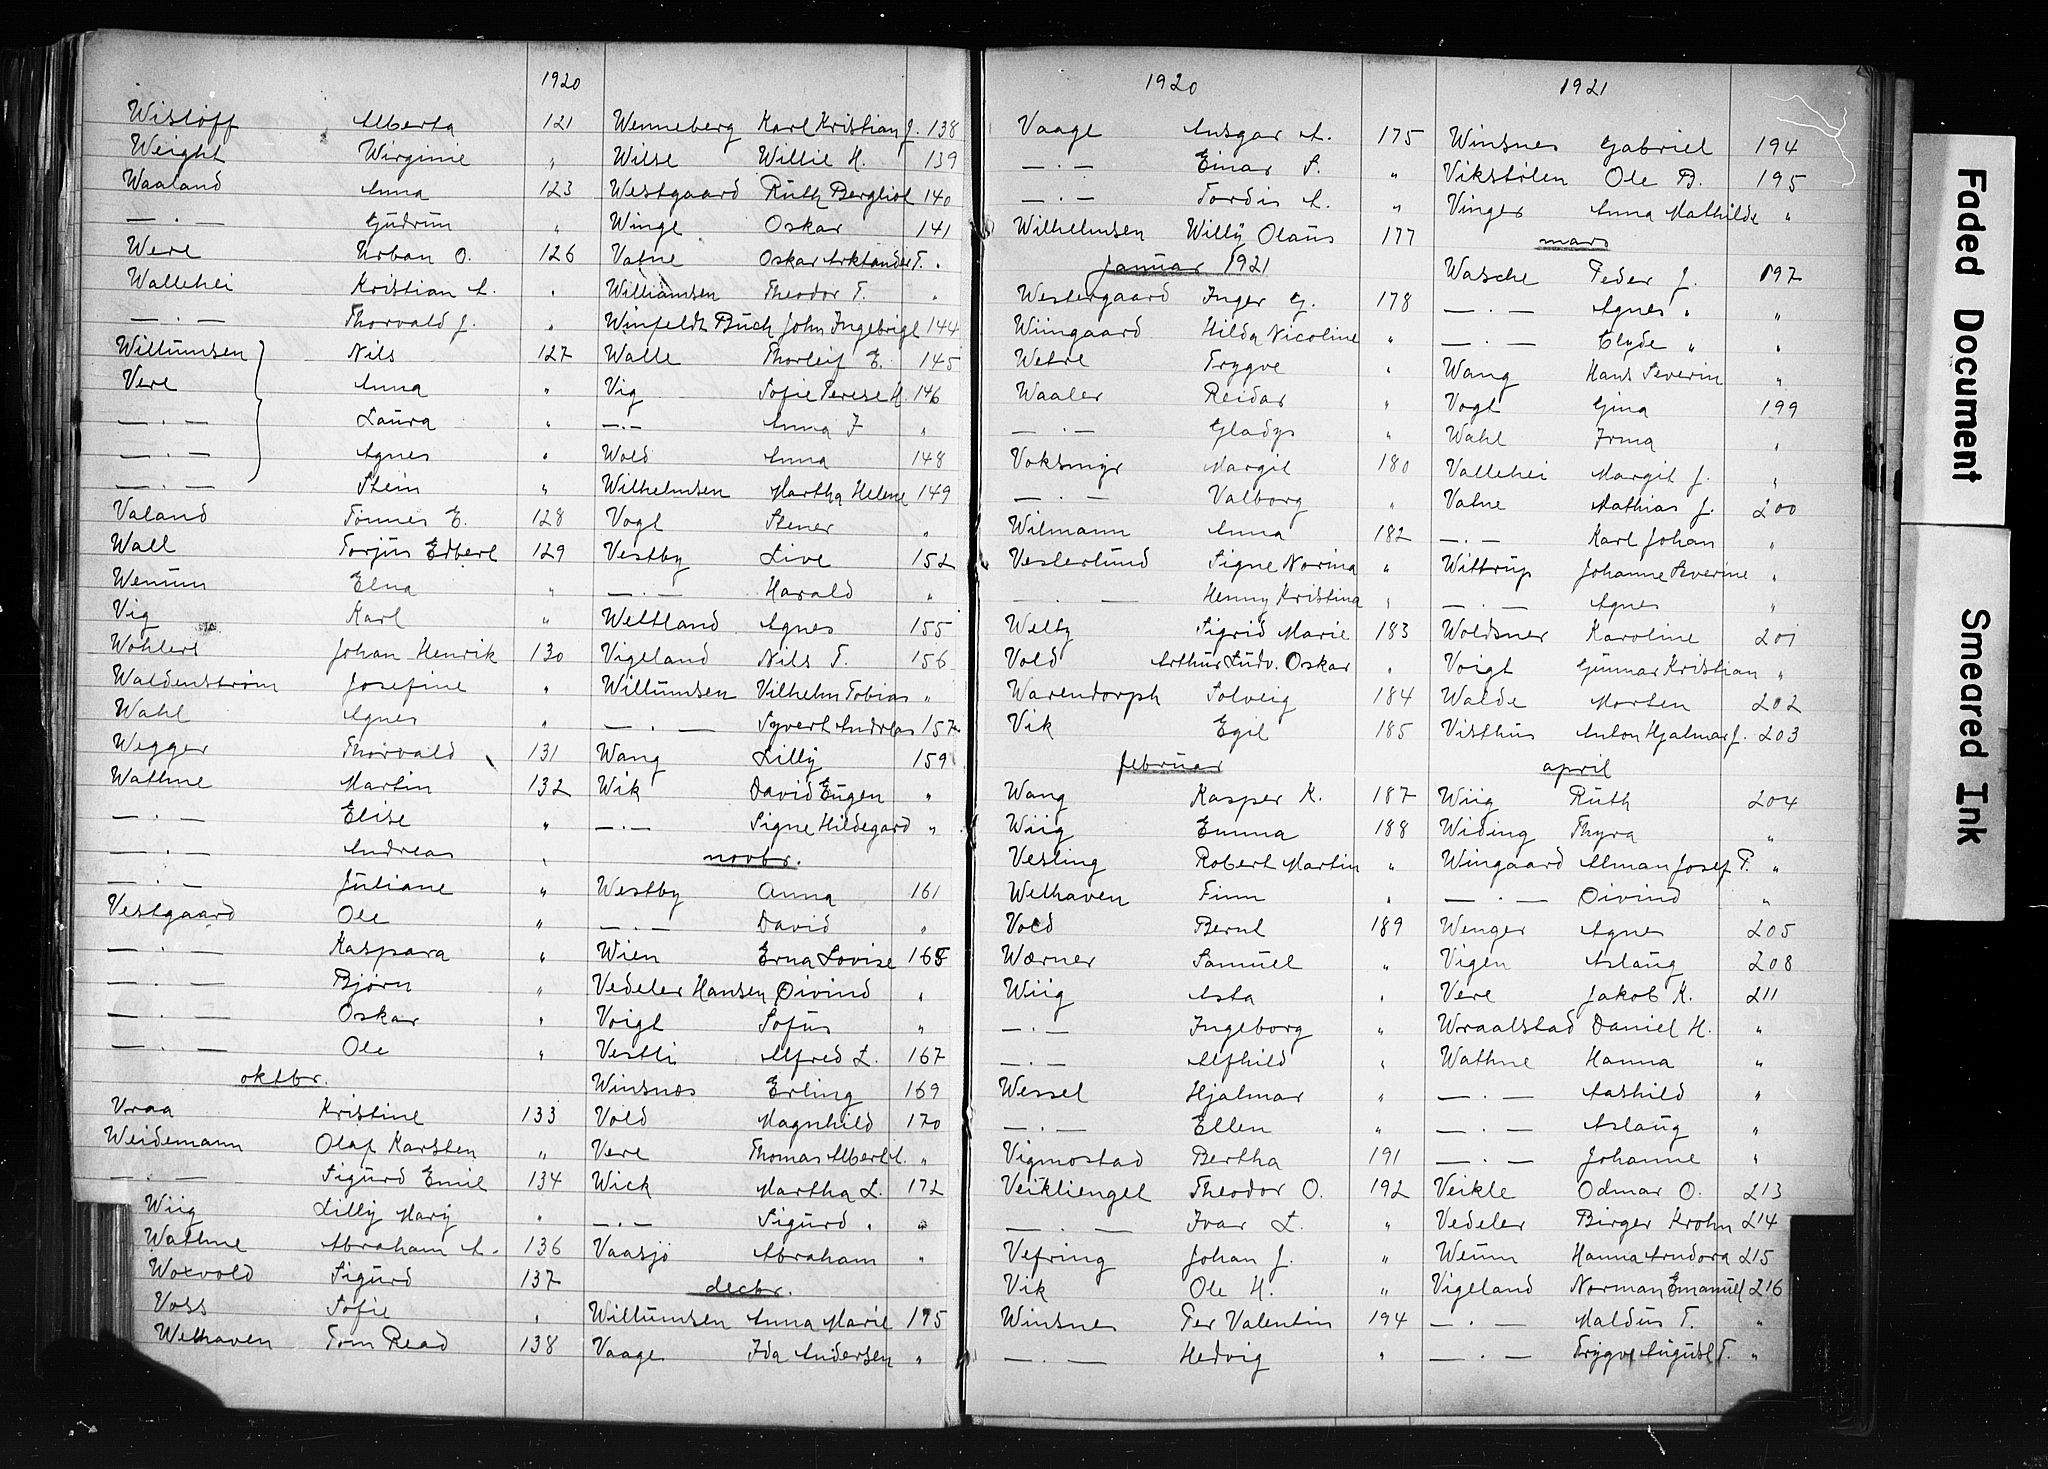 1920
Wisløff Alberta 121
Weight Wirginie "
Waaland Anna 123
— . — Gudrun "
Were Urban O. 126
Wallehei Kristian A. "
— . — Thorvald J. "
Willumsen Nils 127
Vere Anna "
— . — Laura "
— . — Agnes "
— . — Stein "
Valand Tønnes E. 128
Wall Torjus Edbert 129
Wenum Elna "
Vig Karl "
Wohlert Johan Henrik 130
Waldenstrøm Josefine "
Wahl Agnes "
Wegger Thorvald 131
Wathne Martin 132
— . — Elise "
— . — Andreas "
— . — Juliane "
Vestgaard Ole "
— . — Kaspara "
— . — Bjørn "
— . — Oskar "
— . — Ole "
oktbr.
Vraa Kristine 133
Weidemann Olaf Karsten "
— . — Sigurd Emil 134
Wiig Lilly Mary "
Wathne Abraham A. 136
Woxvold Sigurd 137
Voss Sofie "
Welhaven Tom Read 138
Wenneberg Karl Kristian J. 138
Wilse Willie H. 139
Westgaard Ruth Bergliot 140
Winge Oskar 141
Vatne Oskar Arktander T. "
Williamsen Theodor T. "
Winfeldt Buch John Ingebrigt 144
Walle Thorleif E. 145
Vig Sofie Terese H. 146
— . — Anna J "
Wold Anna 148
Wilhelmsen Martha Helene 149
Vogt Stener "
Vestby Live 152
— . — Harald "
Weltland Agnes 155
Vigeland Nils T. 156
Willumsen Vilhelm Tobias "
— . — Syvert Andreas 157
Wang Lilly 159
Wik David Eugen "
— . — Signe Hildegard "
novbr.
Westby Anna 161
— . — David "
Wien Erna Lovise 165
Vedeler Hansen Øivind "
Voigt Sofus "
Vestli Alfred L. 167
Winsnes Erling 169
Vold Magnhild 170
Vere Thomas Albert L. "
Wick Martha L. 172
— . — Sigurd " "
Vaasjö Abraham "
decbr.
Willumsen Anna Marie 175
Vaage Ida Andersen "
1920
Vaage Ansgar A. 175
— . — Einar S. "
— . — Tordis A. "
Wilhelmsen Willy Olaus 177
Januar 1921
Westergaard Inger G. 178
Wiingaard Hilda Nicoline "
Wetre Trygve "
Waaler Reidar "
— . — Gladys "
Voksmyr Margit 180
— . — Valborg "
Wilmann Anna 182
Vesterlund Signe Norina "
— . — Henny Kristina "
Welty Sigrid Marie 183
Vold Arthur Ludv. Oskar "
Warendorph Solveig 184
Vik Egil 185
februar
Wang Kasper K. 187
Wiig Emma 188
Vesling Robert Martin "
Welhaven Finn "
Vold Bernt 189
Wærner Samuel "
Wiig Asta "
— . — Ingeborg "
— . — Alfhild "
Wessel Hjalmar "
— . — Ellen "
Vigmostad Bertha 191
Veiklienget Theodor O. 192
— . — Ivar L. "
Vefring Johan J. "
Vik Ole H. "
Winsnes Per Valentin 194
— . — Hedvig "
1921
Winsnes Gabriel 194
Vikstølen Ole B. 195
Vinger Anna Mathilde "
mars
Wasche Peder J. 197
— . — Agnes " "
— . — Clyde " "
Wang Hans Severin "
Vogt Gina 199
Wahl Irma "
Vallehei Margit J. "
Vatne Mathias J. 200
— . — Karl Johan "
Wittrup Johanne Severine "
— . — Agnes "
Woldsner Karoline 201
Voigt Gunnar Kristian "
Walde Morten 202
Visthus Anton Hjalmar J. 203
april
Wiig Ruth 204
Widing Thyra "
Wingaard Alman Josef T. "
— . — Øivind "
Wenger Agnes 205
Vigen Aslaug 208
Vere Jakob K. 211
Wraalstad Daniel H. "
Wathne Hanna "
— . — Aashild "
— . — Aslaug "
— . — Johanne "
Veikle Odmar O. 213
Vedeler Birger Krohn 214
Weum Hanna Arndora 215
Vigeland Norman Emanuel 216
— . — Maldus T. "
— . — Trygve August T. "
Faded Document
Smeared Ink